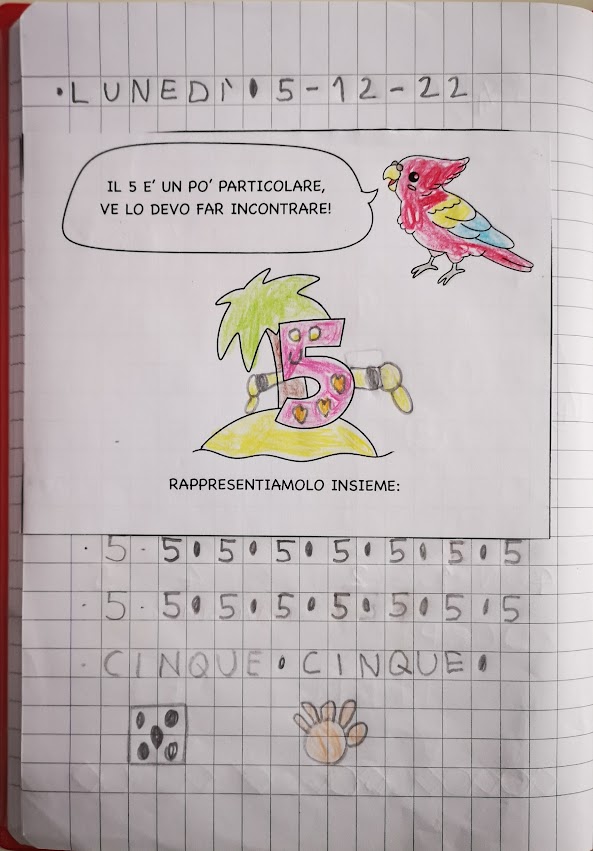 •LUNEDÌ•5-12-22
IL 5 E' UN PO' PARTICOLARE,
VE LO DEVO FAR INCONTRARE!
5
RAPPRESENTIAMOLO INSIEME:
·5·5•5•5•5•5•5•5
·5·5•5•5•5•5•5•5
·CINQUE•CINQUE•